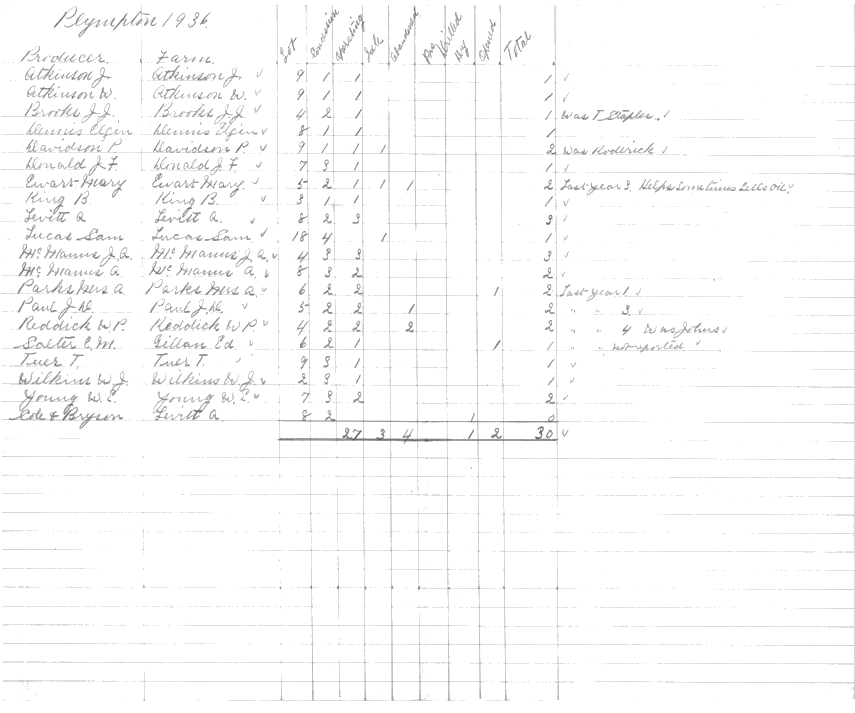 Plympton 1936.
Producer Farm. Lot Concession Operating Idle Abandoned Dug Drilled Dry Opened Total
Atkinson J. Atkinson J. ✓ 9 1 1 1 ✓
Atkinson W. Atkinson W. ✓ 9 1 1 1 ✓
Brooks J.J. Brooks J.J. ✓ 4 2 1 1 Was T Staples. ✓
Dennis Elgin Dennis Elgin ✓ 8 1 1 1
Davidson P. Davidson P. ✓ 9 1 1 1 2 Was Roderick ✓
Donald J.F. Donald J.F. ✓ 7 3 1 1 ✓
Ewart Mary Ewart Mary. ✓ 5 2 1 1 1 2 Last year 3. Helps Sometimes Sells Oil. ✓
King B. King B. ✓ 3 1 1 1 ✓
Levitt A Levitt A. ✓ 8 2 3 3 ✓
Lucas Sam Lucas Sam ✓ 18 4 1 1 ✓
McManus J.A. McManus J.A. ✓ 4 3 3 3 ✓
McManus A. McManus A. ✓ 8 3 2 2 ✓
Parks Mrs A. Parks Mrs A. ✓ 6 2 2 1 2 Last year 1 ✓
Paul J.D. Paul J.D. ✓ 5 2 2 1 2 " " 3. ✓
Reddick W.P. Reddick W.P. ✓ 4 2 2 2 2 " " 4 Was Johns ✓
Salter E.M. Gillan Ed. ✓ 6 2 1 1 1 " " not reported ✓
Tuer T. Tuer T. ✓ 9 3 1 1 ✓
Wilkins W.J. Wilkins W.J. ✓ 2 3 1 1 ✓
Young W.E. Young W.E. ✓ 7 3 2 2 ✓
Cole & Bryson Levitt A. 8 2 1 0
27 3 4 1 2 30 ✓